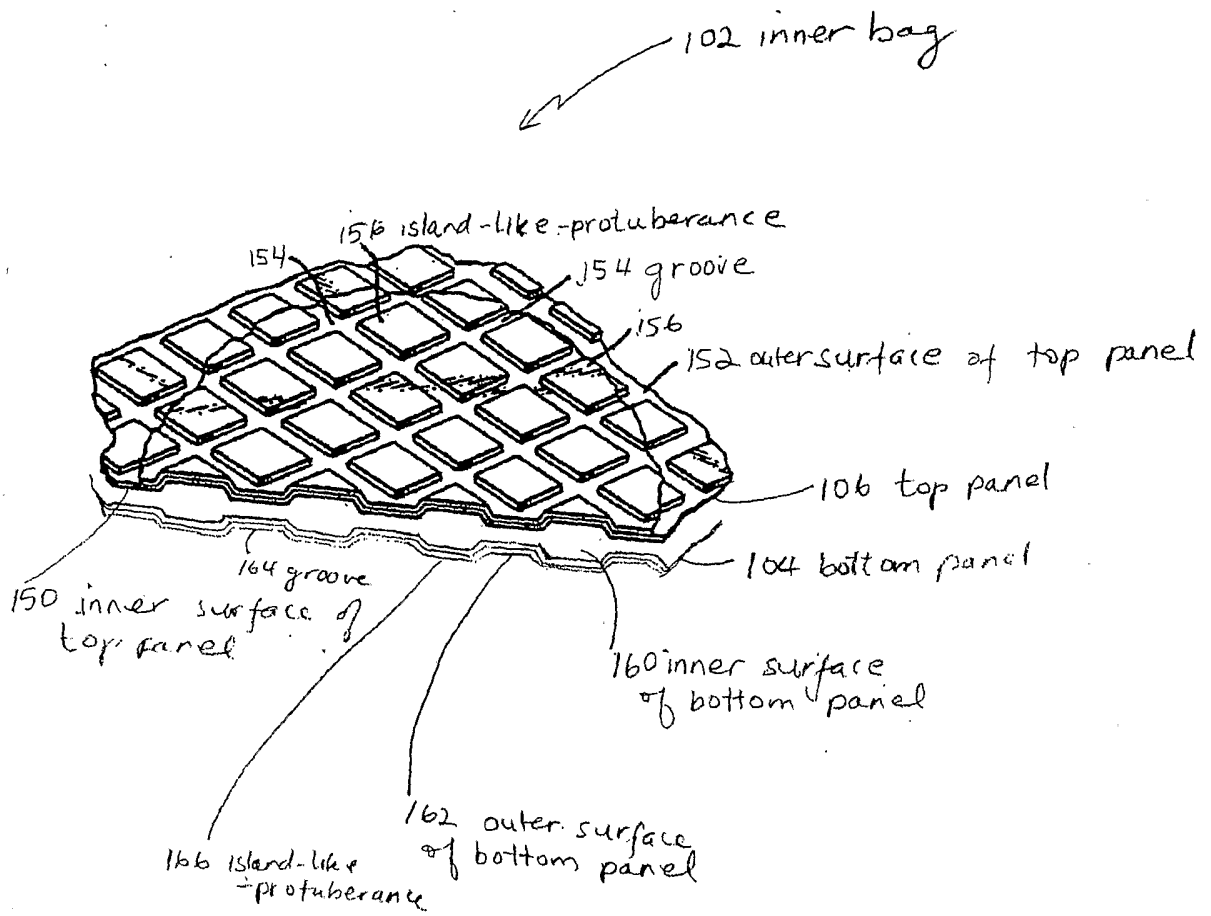 102 inner bag
156 island-like-protuberance
154
154 groove
156
152 outer surface of top panel
106 top panel
104 bottom panel
164 groove
150 inner surface of
top panel
160 inner surface
of bottom panel
162 outer surface
of bottom panel
166 island-like
-protuberance